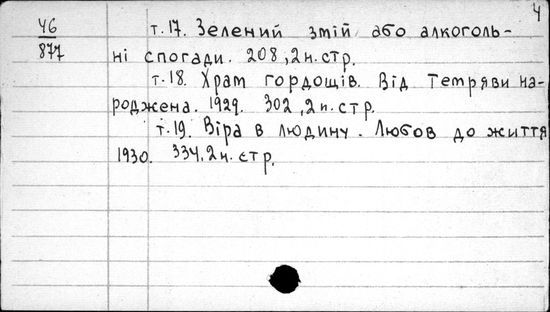 4
46
877
т.17. Зелений змій або алкоголь-
ні спогади. 208,2н.стр.
т.18. Храм гордощів. Від Темряви на-
роджена. 1929. 302,2н.стр.
т.19. Віра в людину. Любов до життя
1930. 334.2н.стр.